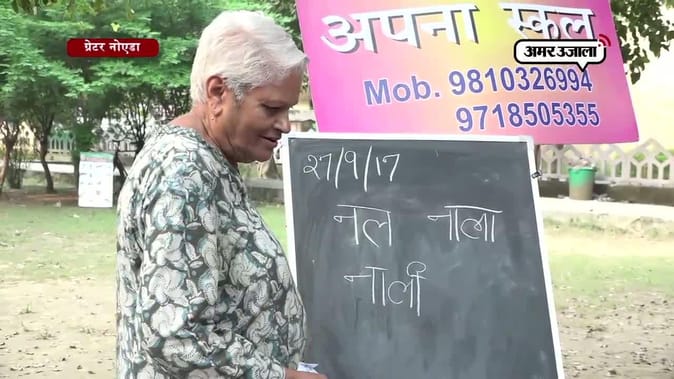 ग्रेटर नोएडा
अपना स्कूल
अमर उजाला
Mob. 9810326994
9718505355
27/9/17
नल नाला
नाली